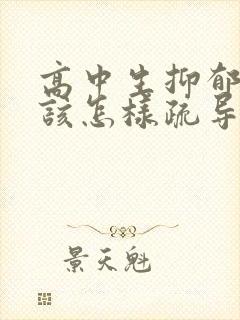 高中生抑郁
該怎樣疏导
景天魁